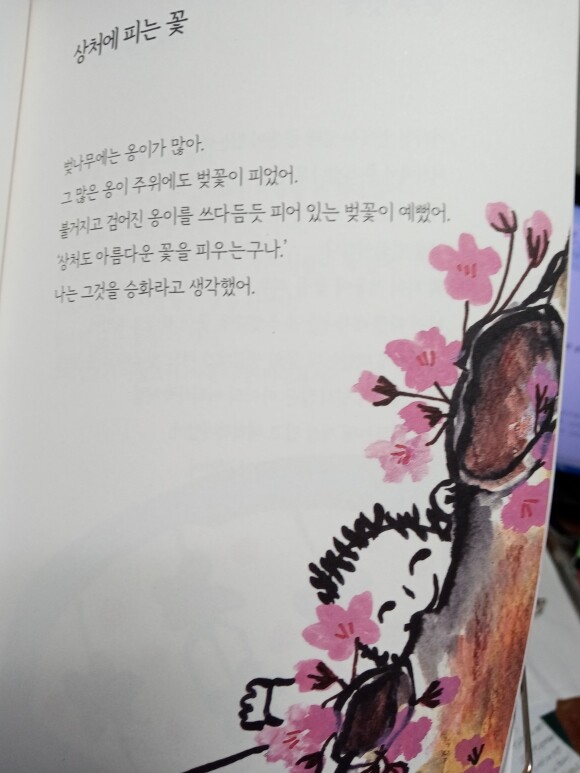 상처에 피는 꽃
벚나무에는 옹이가 많아.
그 많은 옹이 주위에도 벚꽃이 피었어.
불거지고 검어진 옹이를 쓰다듬듯 피어 있는 벚꽃이 예뻤어.
'상처도 아름다운 꽃을 피우는구나.'
나는 그것을 승화라고 생각했어.